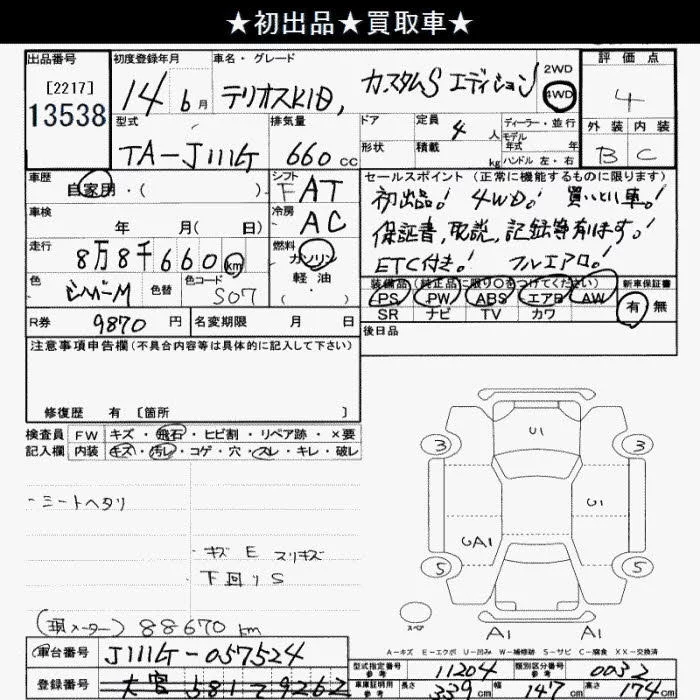 ★初出品★買取車★
出品番号 初度登録年月 車名・グレード 評価点
[2217] 14 6月 テリオスKID, カスタムS エディション 2WD 4WD 4
13538 型式 排気量 ドア 定員 4人 ディーラー・並行 モデル 年式 年 外装 内装
TA-J111G 660cc 形状 積載 kg ハンドル 左・右 B C
車歴 シフト セールスポイント (正常に機能するものに限ります)
自家用・( ) F AT 初出品! 4WD! 買いとり車!
車検 年 月( 日) 冷房 AC 保証書,取説,記録等有ります!
走行 8万8千660km 燃料 ガソリン ETC付き! フルエアロ!
色 シルバーM 色替 色コード S07 軽油 ・( ) 装備品 (純正品に限り○をつけてください) 新車保証書
PS PW ABS エアB AW 有 無
R券 9870円 名変期限 月 日 SR ナビ TV カワ
注意事項申告欄 (不具合内容等は具体的に記入して下さい) 後日品
修復歴 有 [箇所 ]
検査員 FW キズ・飛石・ヒビ割・リペア跡・×要
記入欄 内装 キズ・汚レ・コゲ・穴・スレ・キレ・破レ
・シートヘタリ
・キズ E スリキズ
下回りS
(現メーター) 88670km
U1
3 3
U1
UA1
5 5
スペア A1 A1
A-キズ E-エクボ U-凹み W-補修跡 S-サビ C-腐食 XX-交換済
車台番号 J111G-057524 型式指定番号 参考 11204 類別区分番号 参考 0032
登録番号 大宮 581 つ 9262 車庫証明用 参考 長さ 339cm 幅 147cm 高さ 174cm